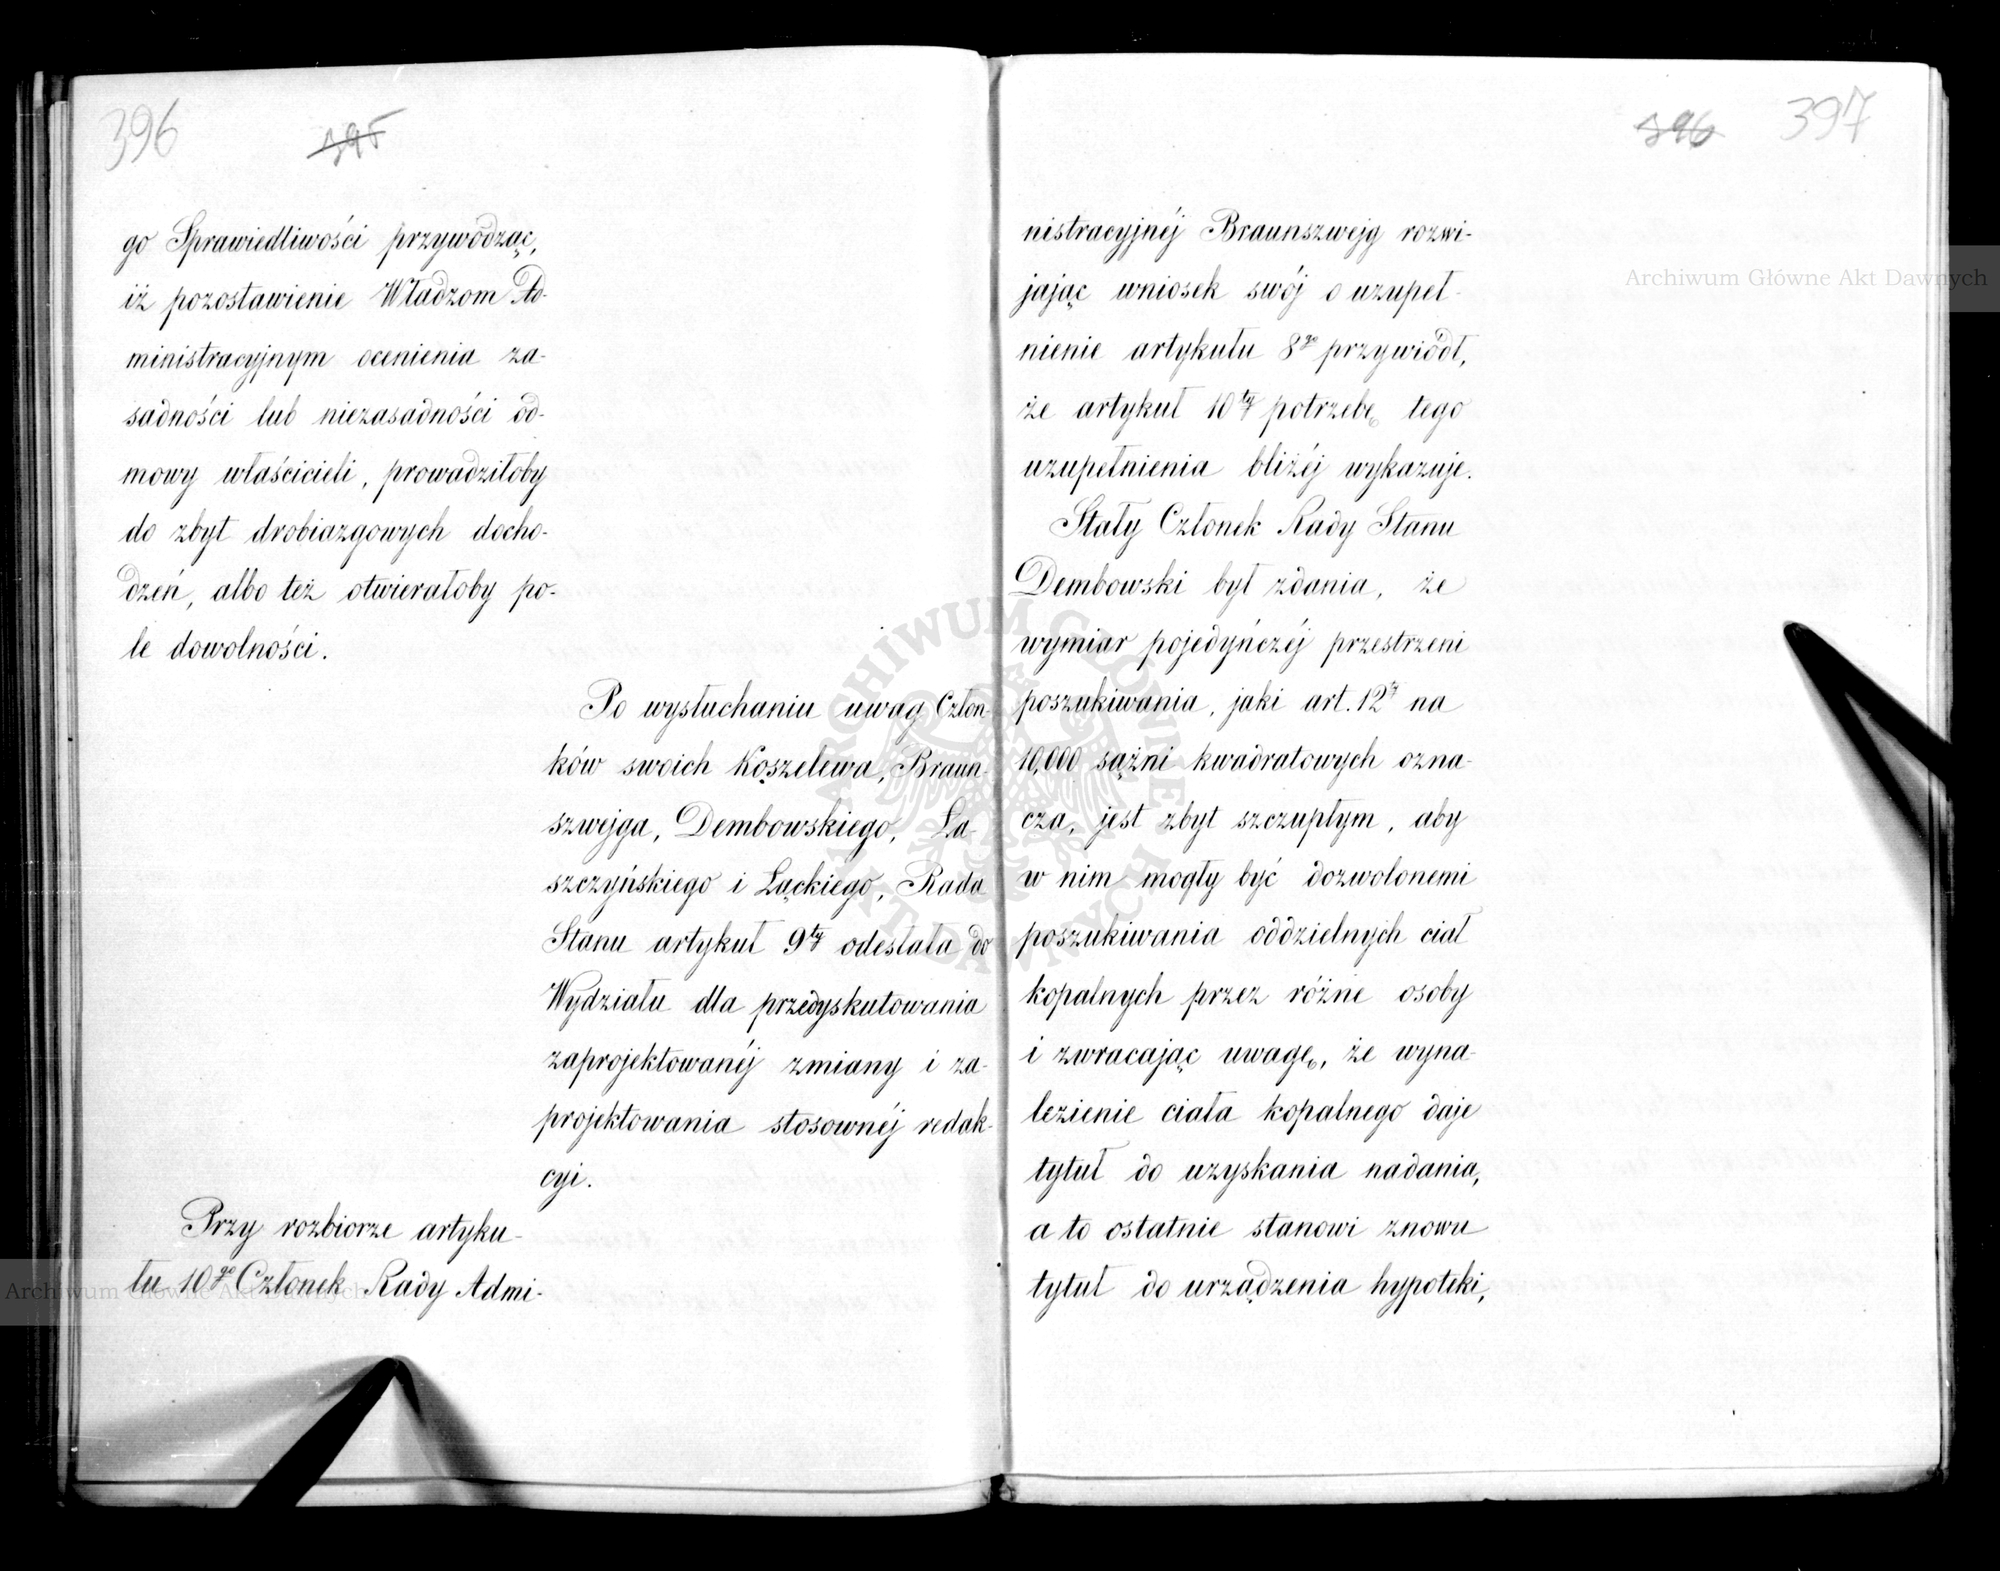 396
395
go Sprawiedliwości przywodząc,
iż pozostawienie Władzom Ad-
ministracyjnym ocenienia za-
sadności lub niezasadności od-
mowy właścicieli, prowadziłoby
do zbyt drobiazgowych docho-
dzeń, albo też otwierałoby po-
le dowolności.
Po wysłuchaniu uwag Człon-
ków swoich Koszelewa, Braun-
szwejga, Dembowskiego, Ła-
szczyńskiego i Łąckiego, Rada
Stanu artykuł 9ty odesłała do
Wydziału dla przedyskutowania
zaprojektowanéj zmiany i za-
projektowania stosownéj redak-
cyi.
Przy rozbiorze artyku-
łu 10go Członek Rady Admi-
396
397
nistracyjnéj Braunszwejg rozwi-
jając wniosek swój o uzupeł-
nienie artykułu 8go przywiódł,
że artykuł 10ty potrzebę tego
uzupełnienia bliżéj wykazuje.
Stały Członek Rady Stanu
Dembowski był zdania, że
wymiar pojedyńczéj przestrzeni
poszukiwania, jaki art. 12ty na
10,000 sążni kwadratowych ozna-
cza, jest zbyt szczupłym, aby
w nim mogły być dozwolonemi
poszukiwania oddzielnych ciał
kopalnych przez różne osoby
i zwracając uwagę, że wyna-
lezienie ciała kopalnego daje
tytuł do uzyskania nadania,
a to ostatnie stanowi znowu
tytuł do urządzenia hypoteki,
Archiwum Główne Akt Dawnych
Archiwum Główne Akt Dawnych
ARCHIWUM GŁÓWNE AKT DAWNYCH